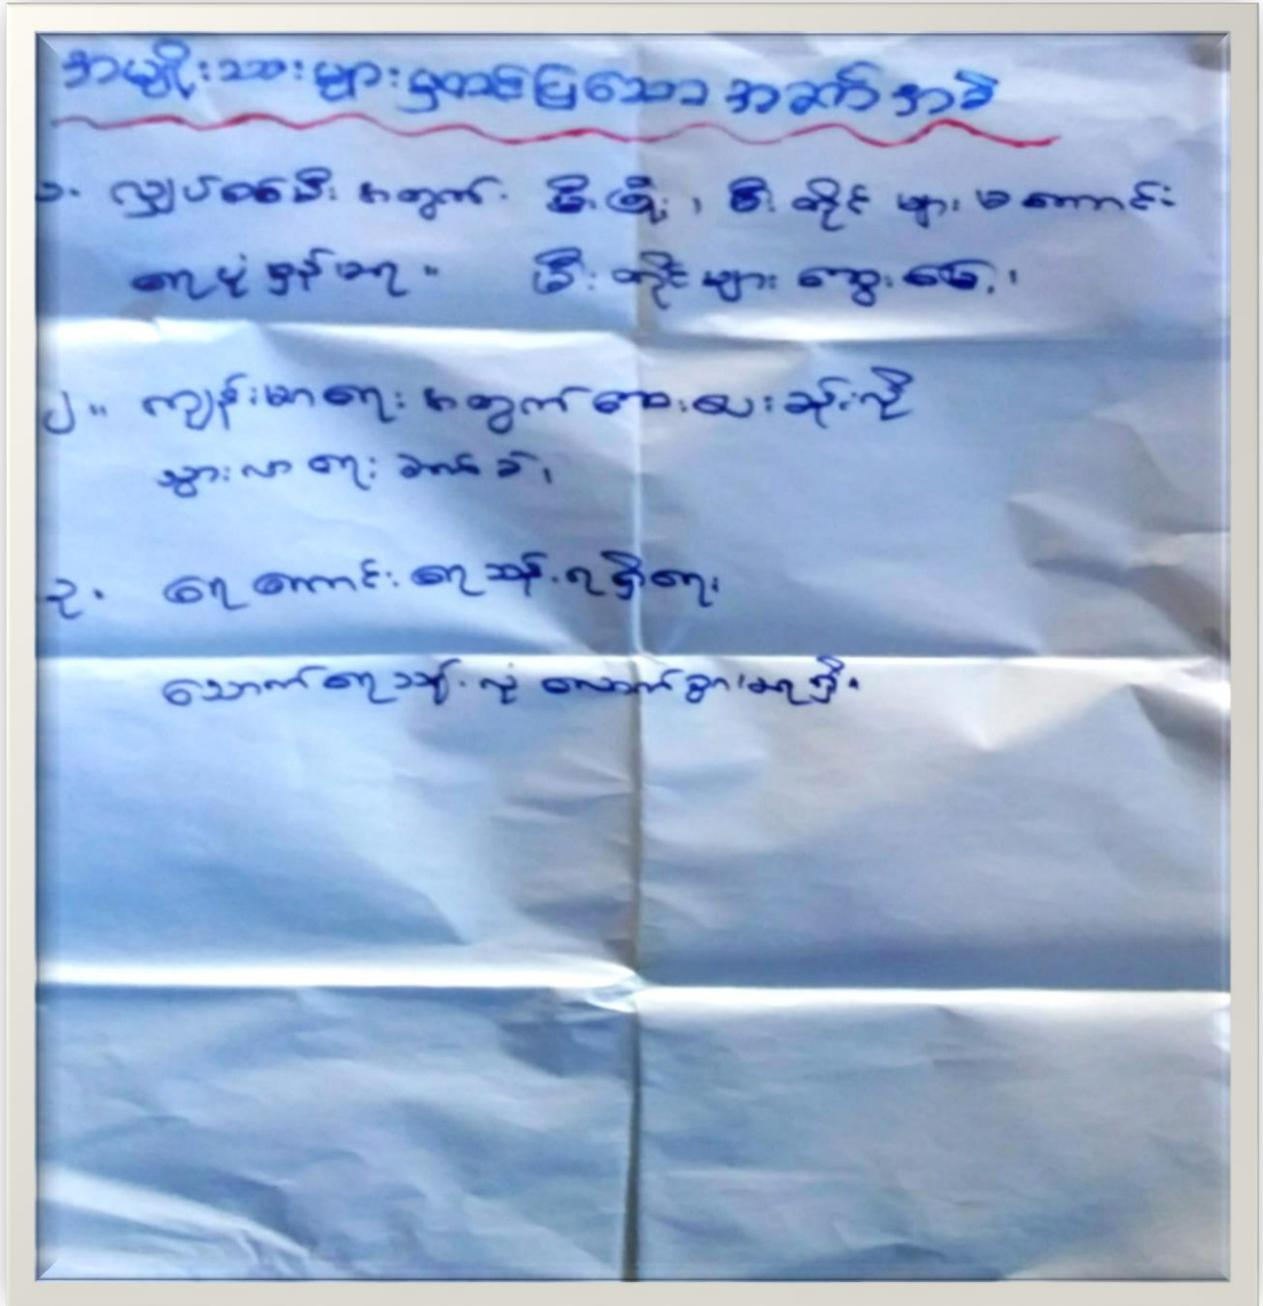 အမျိုးသားများမှတင်ပြသောအခက်အခဲ
၁. လျှပ်စစ်မီး အတွက်. မီးကြိုး၊ မီးတိုင် များ မကောင်း
တော့ပုံမှန်မရ။ မီးတိုင်များ ဆွေးမြေ့၊
၂။ ကျန်းမာရေး အတွက် ဆေးပေးခန်းကို
သွားလာရေး ခက်ခဲ၊
၃. ရေကောင်းရေသန့်ရရှိရေး
သောက်ရေသန့် လုံလောက်စွာမရရှိ.